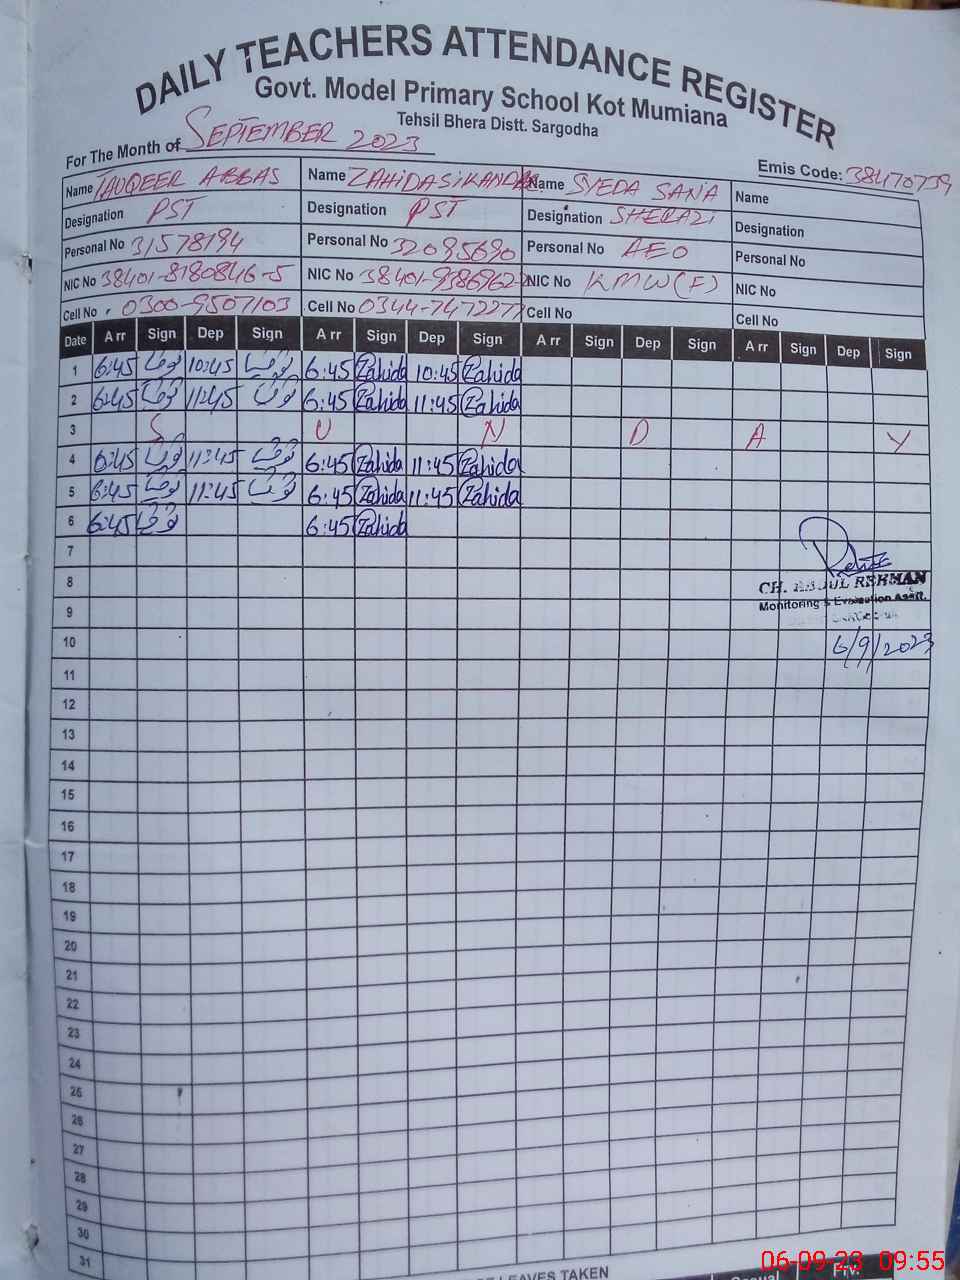 DAILY TEACHERS ATTENDANCE REGISTER
Govt. Model Primary School Kot Mumiana
Tehsil Bhera Distt. Sargodha
For The Month of SEPTEMBER 2023
Emis Code: 38470739
Name TAUQEER ABBAS Name ZAHIDA SIKANDAR Name SYEDA SANA Name
Designation PST Designation PST Designation SHERAZI Designation
Personal No 31578194 Personal No 32095690 Personal No AEO Personal No
NIC No 38401-8180846-5 NIC No 38401-9386962- NIC No KMW(F) NIC No
Cell No 0300-9507103 Cell No 0344-7472277 Cell No Cell No
Date Arr Sign Dep Sign Arr Sign Dep Sign Arr Sign Dep Sign Arr Sign Dep Sign
1 6:45 10:45 6:45 Zahida 10:45 Zahida
2 6:45 11:45 6:45 Zahida 11:45 Zahida
3 S U N D A Y
4 6:45 11:45 6:45 Zahida 11:45 Zahida
5 6:45 11:45 6:45 Zahida 11:45 Zahida
6 6:45 6:45 Zahida
7
8 CH. ABDUL REHMAN
Monitoring & Evaluation Asstt.
9
10 6/9/2023
11
12
13
14
15
16
17
18
19
20
21
22
23
24
25
26
27
28
29
30
31
LEAVES TAKEN Casual Prv.
06-09-23 09:55